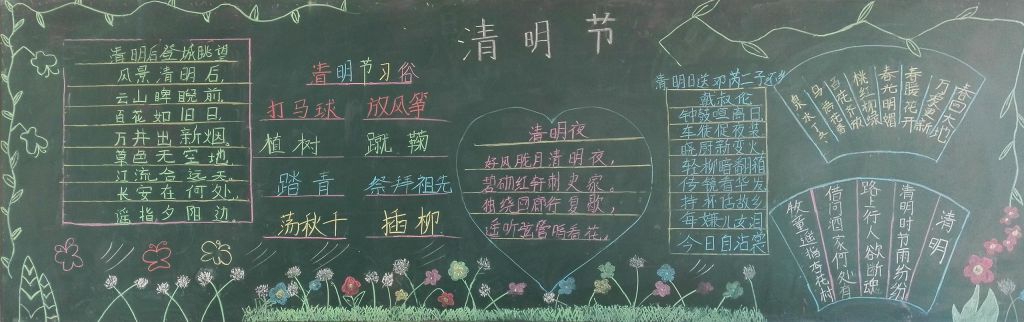 清明节
清明后登城眺望
风景清明后，
云山睥睨前。
百花如旧日，
万井出新烟。
草色无空地，
江流合远天。
长安在何处，
遥指夕阳边。
清明节习俗
打马球 放风筝
植树 蹴鞠
踏青 祭拜祖先
荡秋千 插柳
清明夜
好风胧月清明夜，
碧砌红轩刺史家。
独绕回廊行复歇，
遥听弦管暗看花。
清明日送邓芮二子还乡
戴叔伦
钟鼓喧离日
车徒促夜装
晓厨新变火
轻柳暗翻霜
传镜看华发
持杯话故乡
每嫌儿女泪
今日自沾裳
春回大地
万象更新
春暖花开
春光明媚
桃红柳绿
百花齐放
清明
清明时节雨纷纷
路上行人欲断魂
借问酒家何处有
牧童遥指杏花村